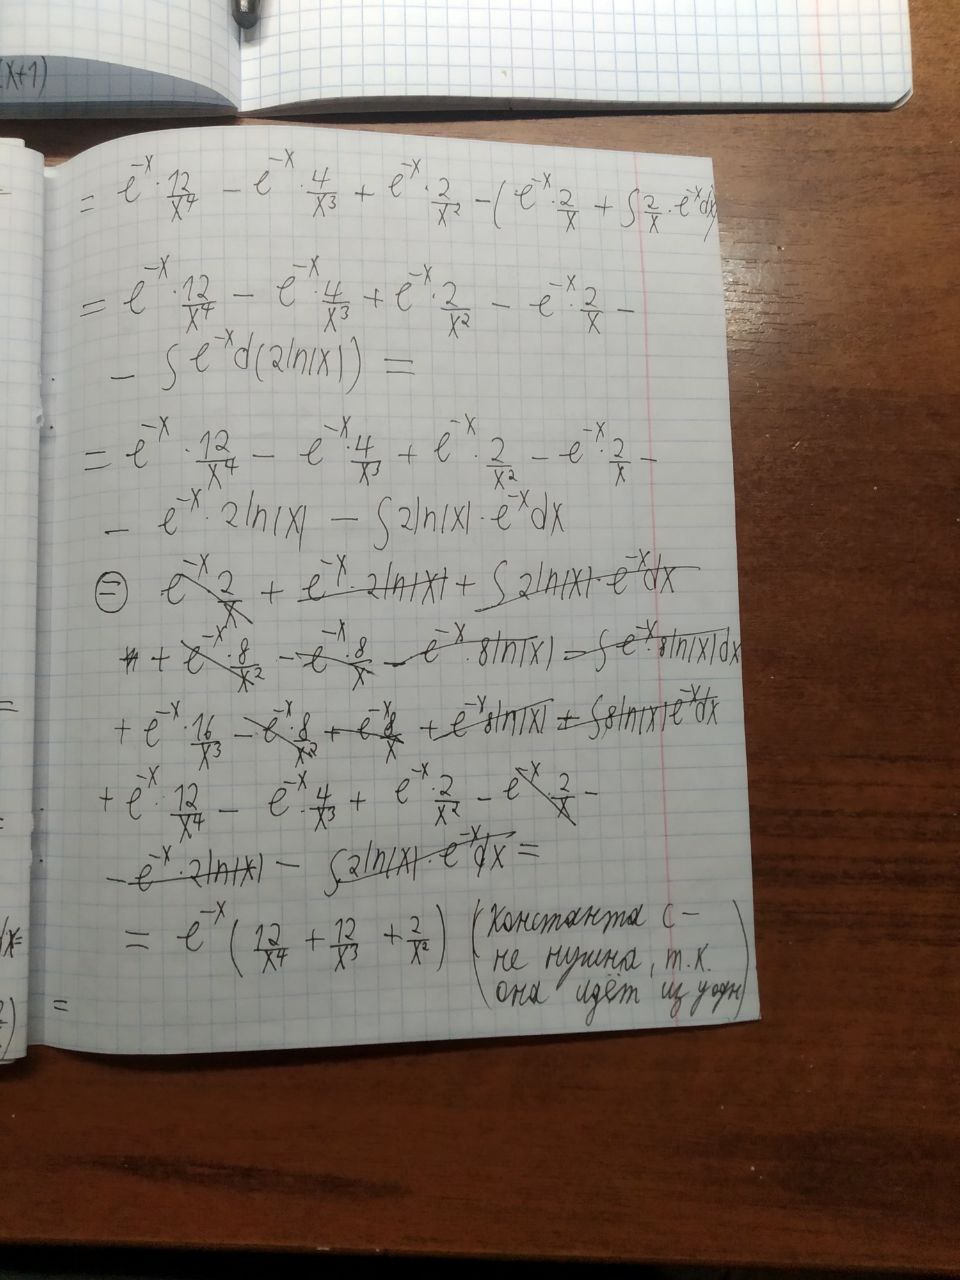 (x+1)
= e^{-x}·12/x^4 - e^{-x}·4/x^3 + e^{-x}·2/x^2 - (e^{-x}·2/x + ∫2/x·e^{-x}dx)
= e^{-x}·12/x^4 - e^{-x}·4/x^3 + e^{-x}·2/x^2 - e^{-x}·2/x -
- ∫e^{-x}d(2ln|x|) =
= e^{-x}·12/x^4 - e^{-x}·4/x^3 + e^{-x}·2/x^2 - e^{-x}·2/x -
- e^{-x}·2ln|x| - ∫2ln|x|·e^{-x}dx
⊜ e^{-x}2/x + e^{-x}·2ln|x| + ∫2ln|x|·e^{-x}dx
+ e^{-x}·8/x^2 - e^{-x}·8/x - e^{-x}·8ln|x| - ∫e^{-x}·8ln|x|dx
+ e^{-x}·16/x^3 - e^{-x}·8/x^2 + e^{-x}8/x + e^{-x}8ln|x| + ∫8ln|x|e^{-x}dx
+ e^{-x}·12/x^4 - e^{-x}·4/x^3 + e^{-x}·2/x^2 - e^{-x}·2/x -
- e^{-x}·2ln|x| - ∫2ln|x|·e^{-x}dx =
= e^{-x}(12/x^4 + 12/x^3 + 2/x^2) (константа с -
не нужна, т.к.
она идёт из уодн)
=
dx=